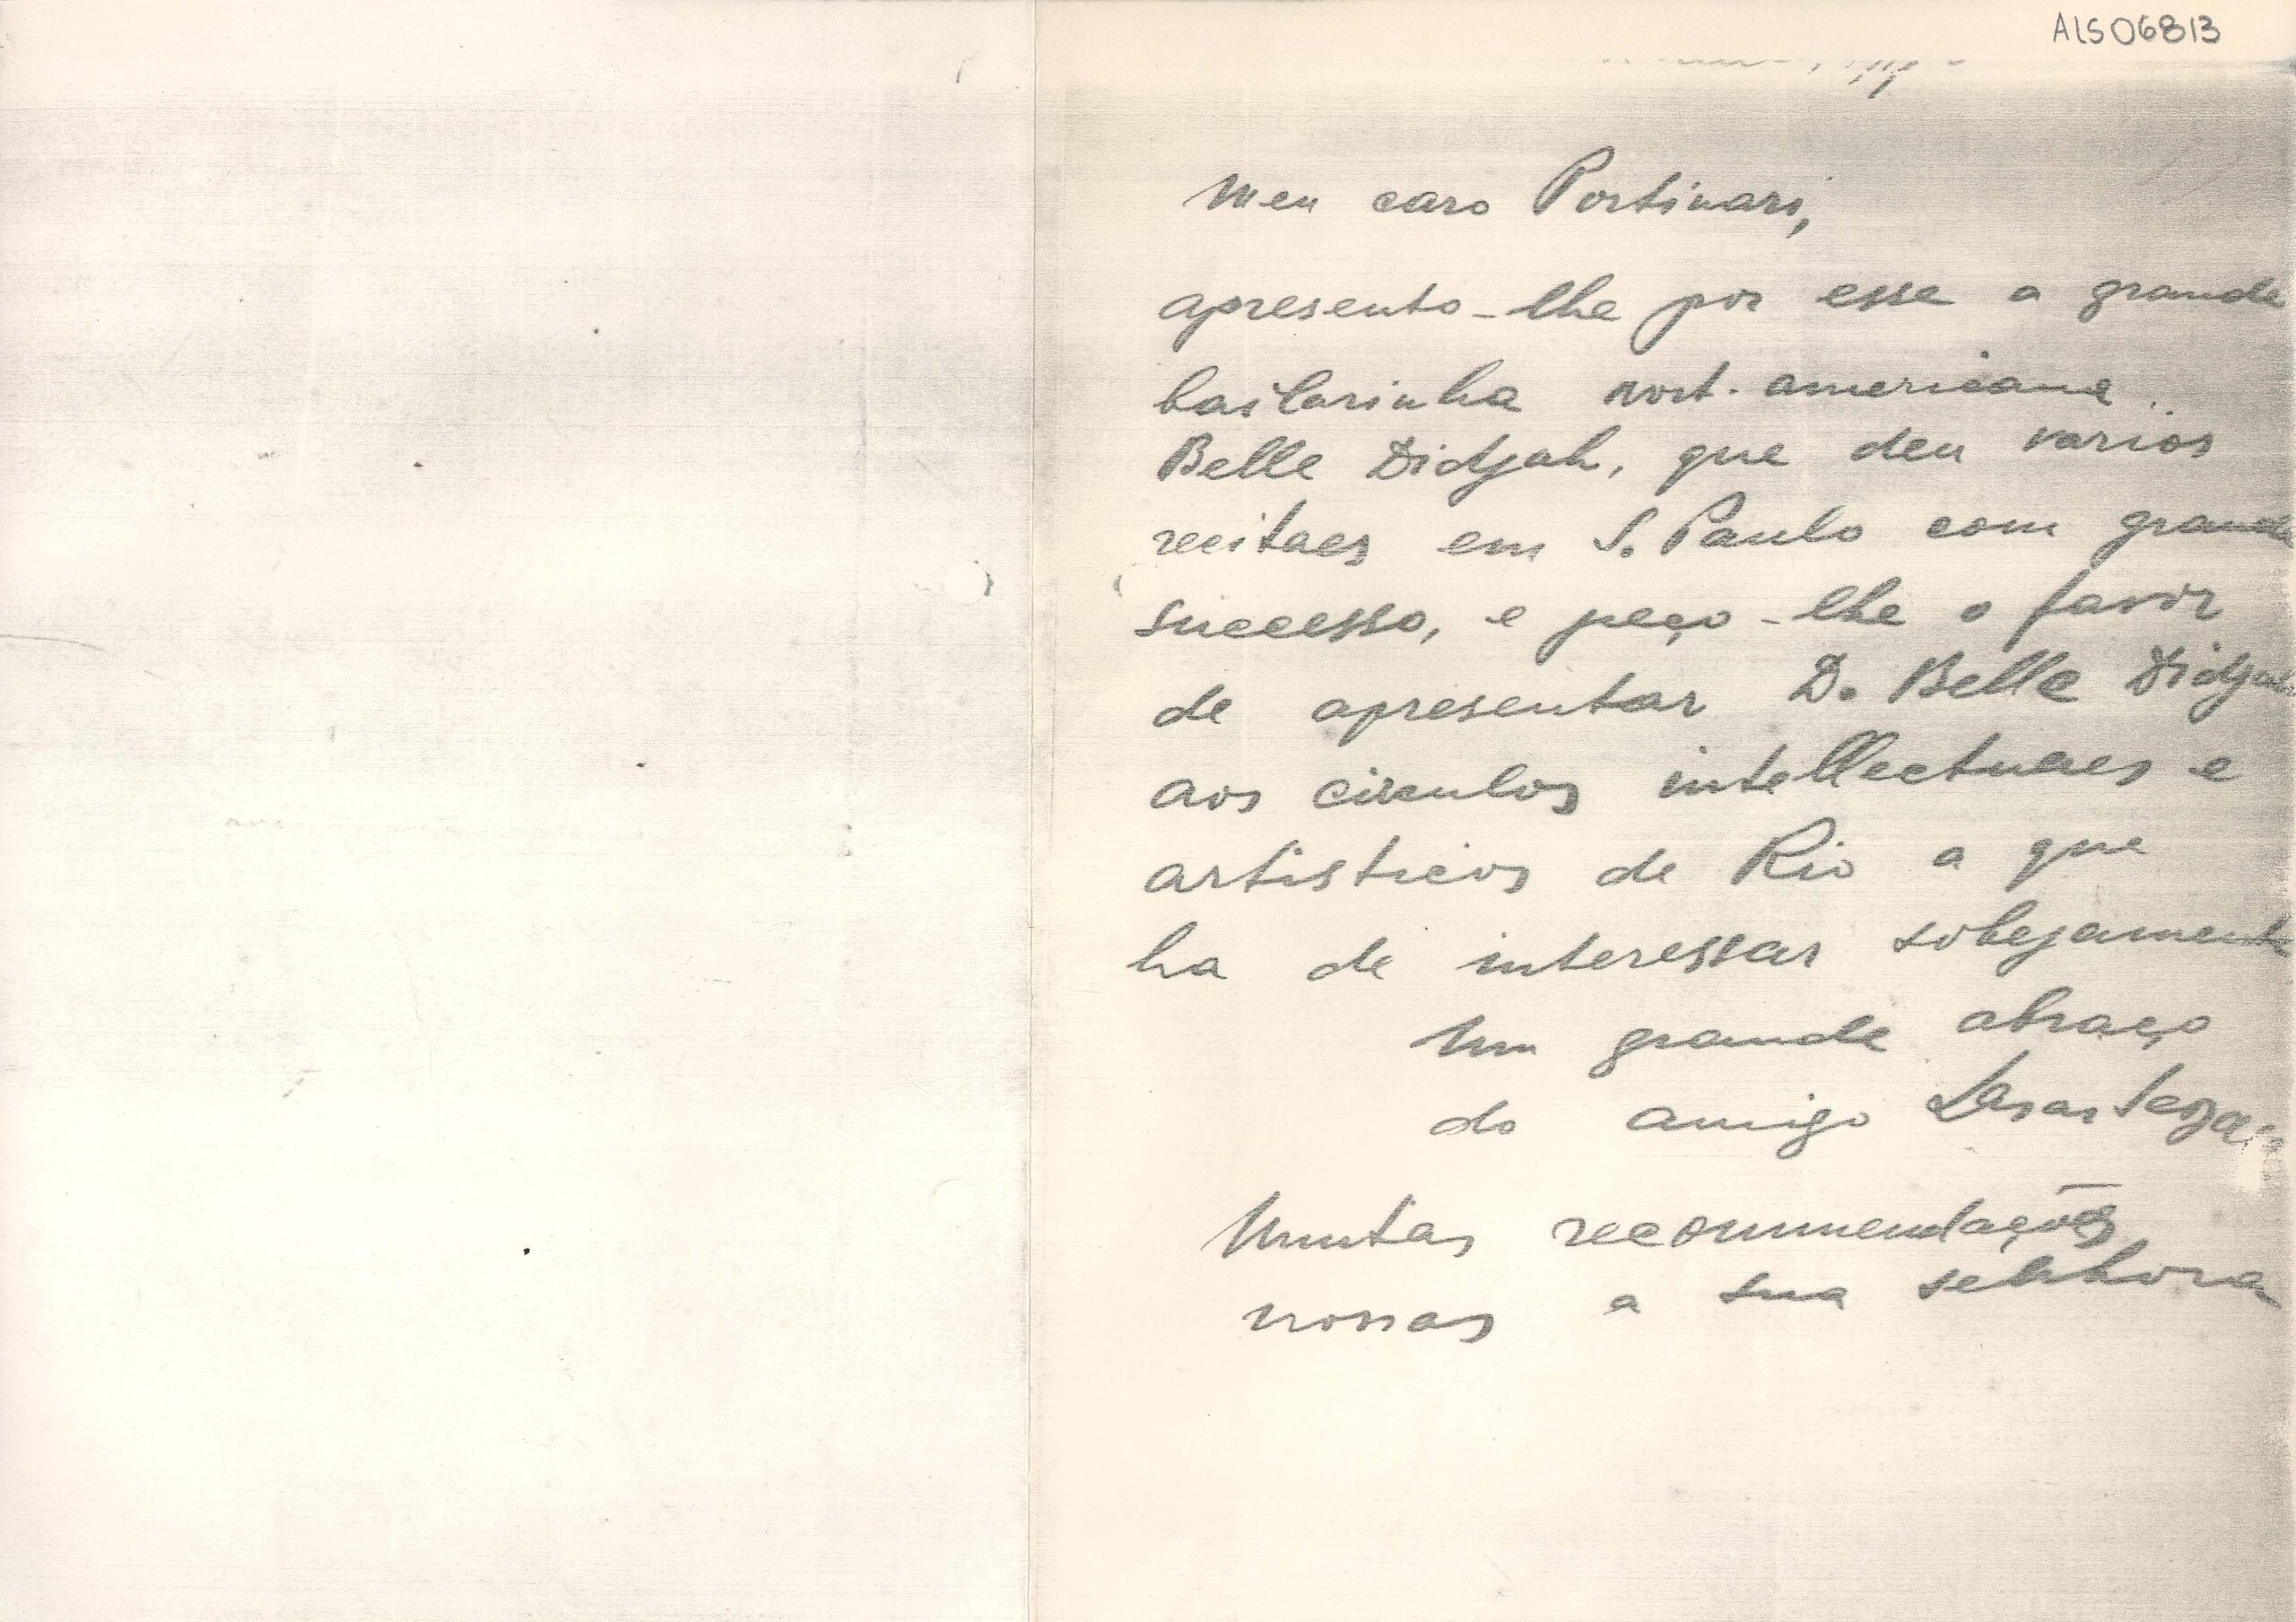 ALS06813
Meu caro Portinari,
apresento-lhe por esse a grande
bailarinha nort-americana
Belle Didjah, que deu varios
recitaes em S. Paulo com grande
successo, e peço-lhe o favor
de apresentar D. Belle Didjah
aos circulos intellectuaes e
artisticos de Rio a que
ha de interessar sobejamente
Um grande abraço
do amigo Lasar Segall
Muitas recommendações
nossas a sua senhora